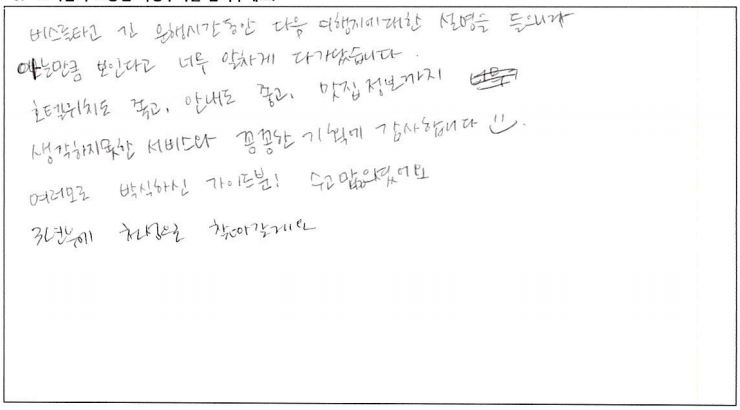 버스타고 긴 운행시간동안 다음 여행지에대한 설명을 들으니까
아는만큼 보인다고 너무 알차게 다가왔습니다.
호텔위치도 좋고, 안내도 좋고, 맛집정보까지
생각하지못한 서비스와 꼼꼼한 기획에 감사합니다
여러모로 박식하신 가이드분! 수고많으셨어요
3년후에 찾아갈게요